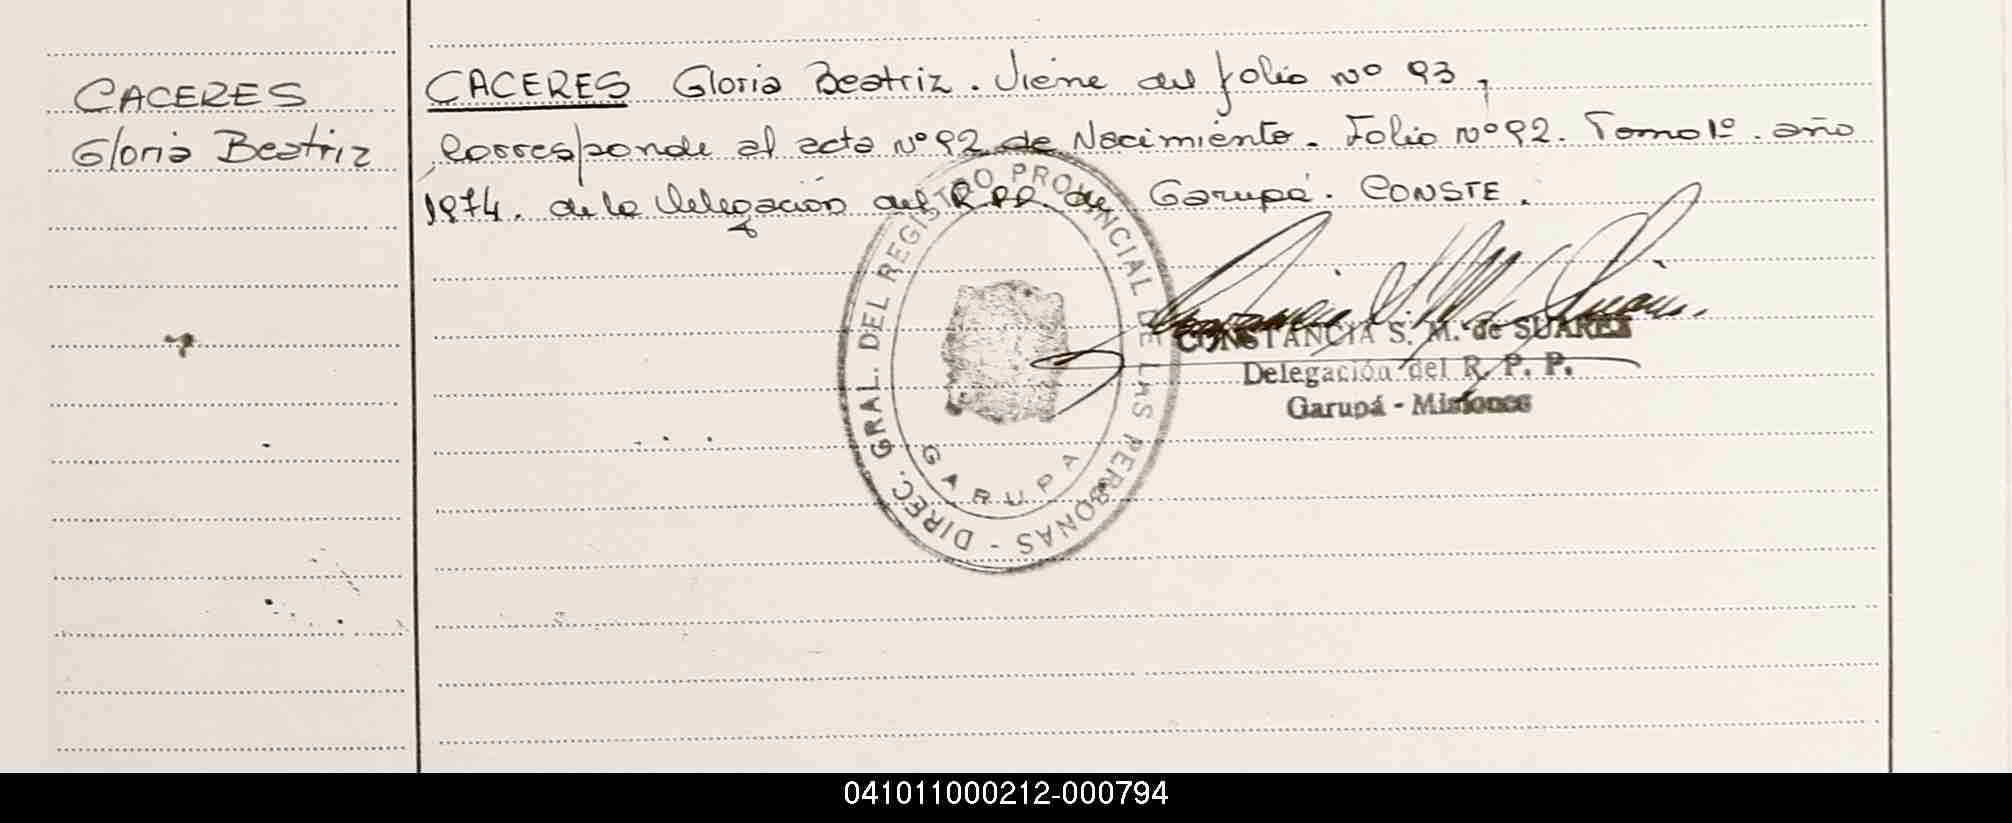 CACERES
Gloria Beatriz
CACERES Gloria Beatriz. Viene del folio nº 93,
Corresponde al acta nº 92 de Nacimiento. Folio nº 92. Tomo 1º. año
1974. de la Delegación del R.P.P. de Garupá. CONSTE.
DIREC. GRAL. DEL REGISTRO PROVINCIAL DE LAS PERSONAS -
GARUPA
CONSTANCIA S. M. de SUAREZ
Delegación del R. P. P.
Garupá - Misiones
041011000212-000794